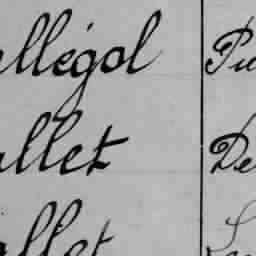 allégol Pu
allet De
allet